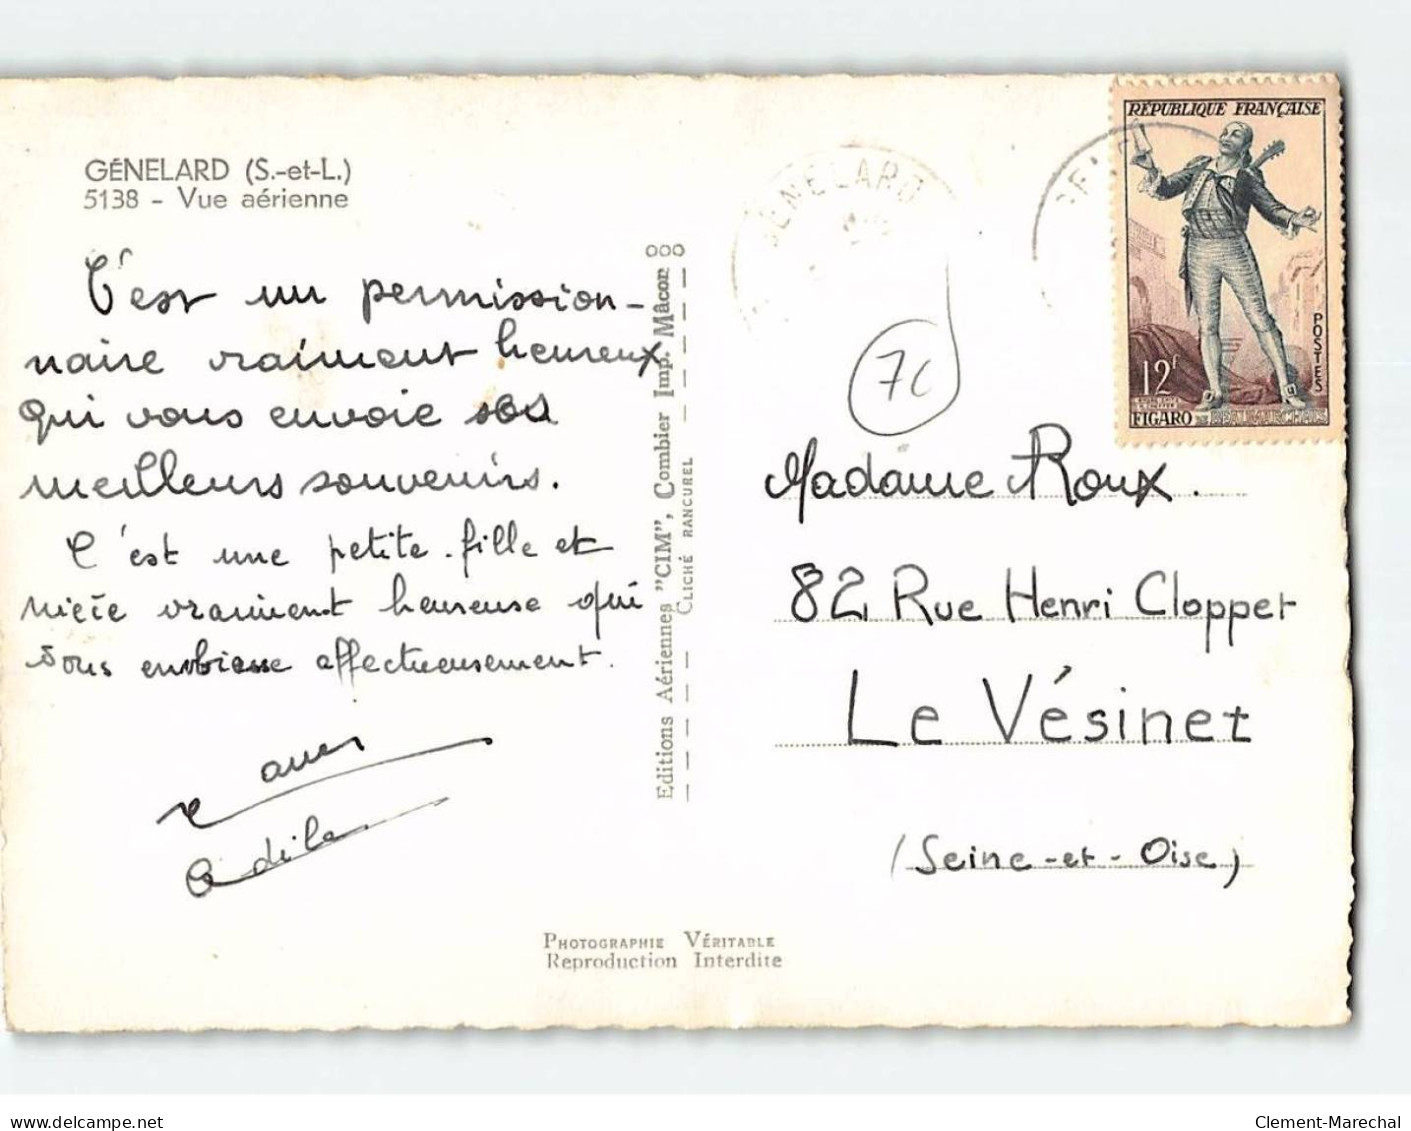 GÉNELARD (S.-et-L.)
5138 - Vue aérienne
C'est un permission-
naire vraiment heureux
qui vous envoie ses
meilleurs souvenirs.
C'est une petite-fille et
nièce vraiment heureuse qui
vous embrasse affectueusement.
Odile
Editions Aériennes "CIM", Combier Imp. Mâcon
CLICHÉ RANCUREL
GENELARD
RÉPUBLIQUE FRANÇAISE
POSTES
12f
FIGARO DE BEAUMARCHAIS
7C
Madame Roux.
82, Rue Henri Cloppet
Le Vésinet
(Seine-et-Oise)
PHOTOGRAPHIE VÉRITABLE
Reproduction Interdite
delcampe.net
Clement-Marechal